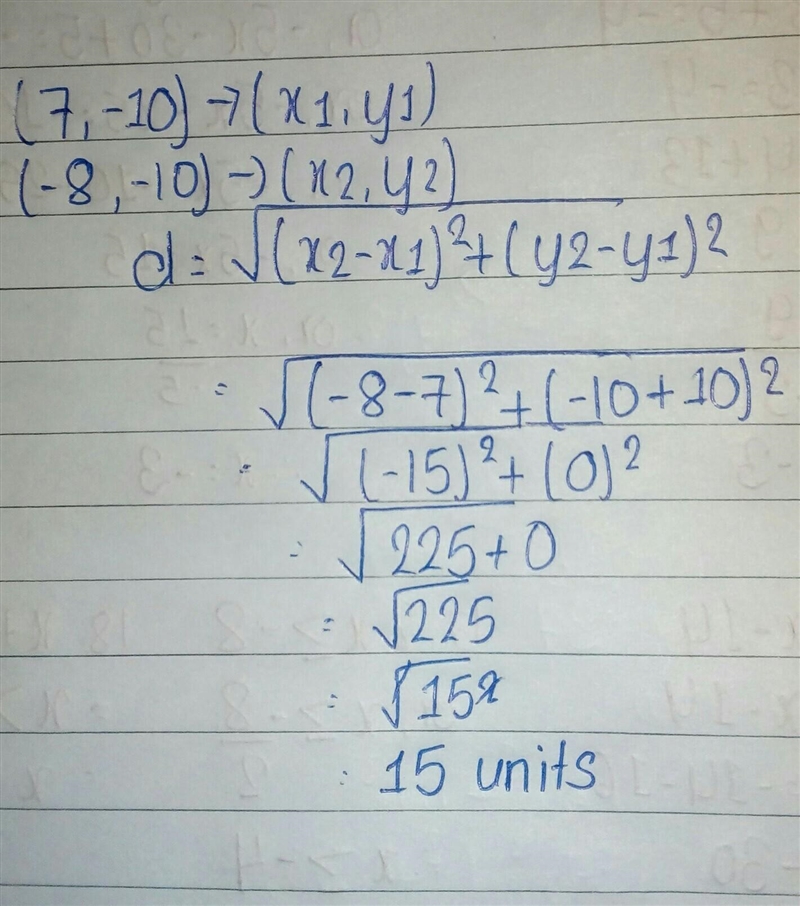 (7,-10)→(x1,y1)
(-8,-10)→(x2,y2)
d=√(x2-x1)²+(y2-y1)2
=√(-8-7)²+(-10+10)2
=√(-15)²+(0)²
=√225+0
=√225
=√15²
:15 units